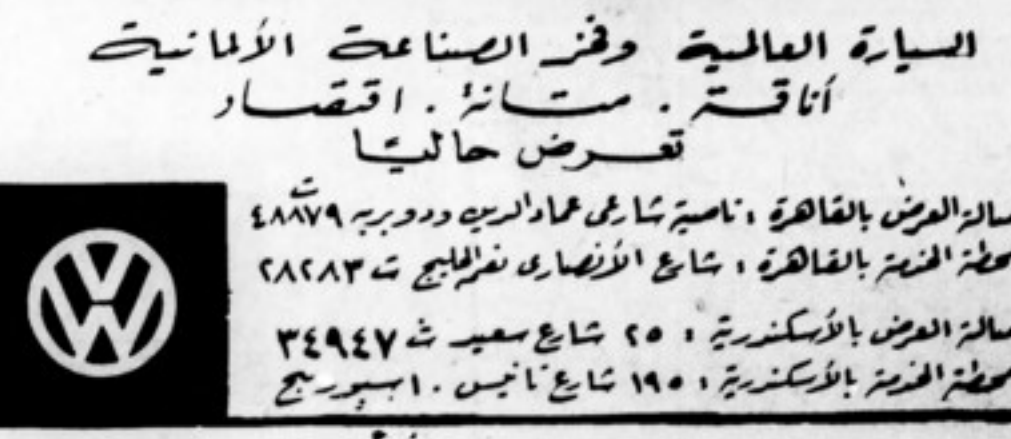 السيارة العالمية وفخر الصناعة الألمانية
أناقة . متانة . اقتصاد
تعرض حاليًا
صالة العرض بالقاهرة : ناصية شارعى عماد الدين ودوبريه ت ٤٨٨٧٩
محطة الخدمة بالقاهرة : شارع الأنصارى نمر الخليج ت ٢٨٢٨٣
صالة العرض بالأسكندرية : ٢٥ شارع سعيد ت ٣٤٩٤٧
محطة الخدمة بالأسكندرية : ١٩٥ شارع تانيس . اسبورتنج
VW